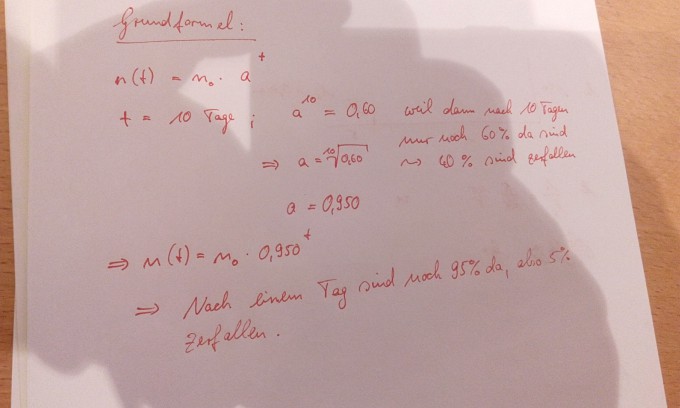 Grundformel:
n(t) = n₀ · aᵗ
t = 10 Tage ; a¹⁰ = 0,60 weil dann nach 10 Tagen
nur noch 60% da sind
⇒ a = ¹⁰√0,60 ⤳ 40% sind zerfallen
a = 0,950
⇒ n(t) = n₀ · 0,950ᵗ
⇒ Nach einem Tag sind noch 95% da, also 5%
zerfallen.